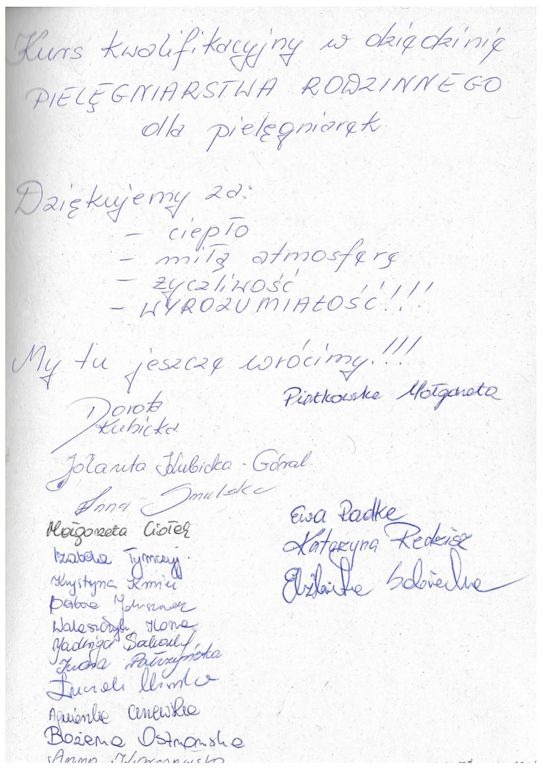 Kurs kwalifikacyjny w dziędzinię
PIELĘGNIARSTWA RODZINNEGO
dla pielęgniarek
Dziękujemy za:
– ciepło
– miłą atmosferę
– życzliwość
– WYROZUMIAŁOŚĆ!!!
My tu jeszczę wrócimy!!!
Piotkowska Małgorzata
Dorota
Kubicka
Jolanta Kubicka-Góral
Anna Smulska
Małgorzata Ciołek
Izabela
Krystyna
Ilona
Jadwiga
Iwona
Agnieszka
Bożena Ostrowska
Anna
Ewa Radke
Katarzyna Redzisz
Elżbieta